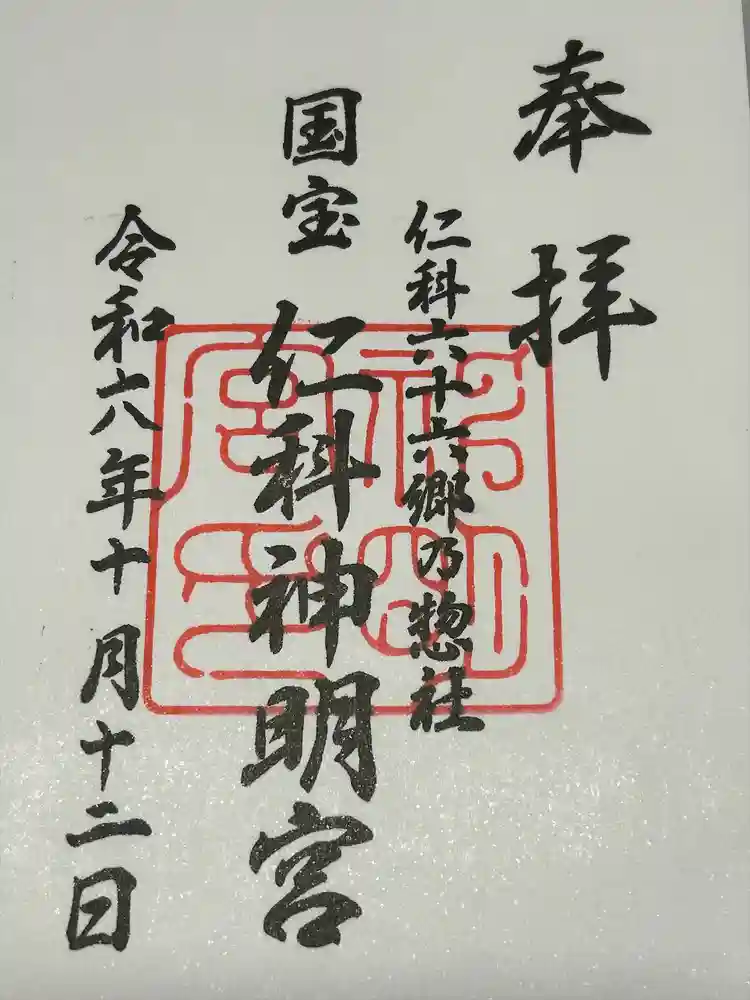 奉拝
仁科六十六郷乃惣社
国宝 仁科神明宮
令和六年十月十二日